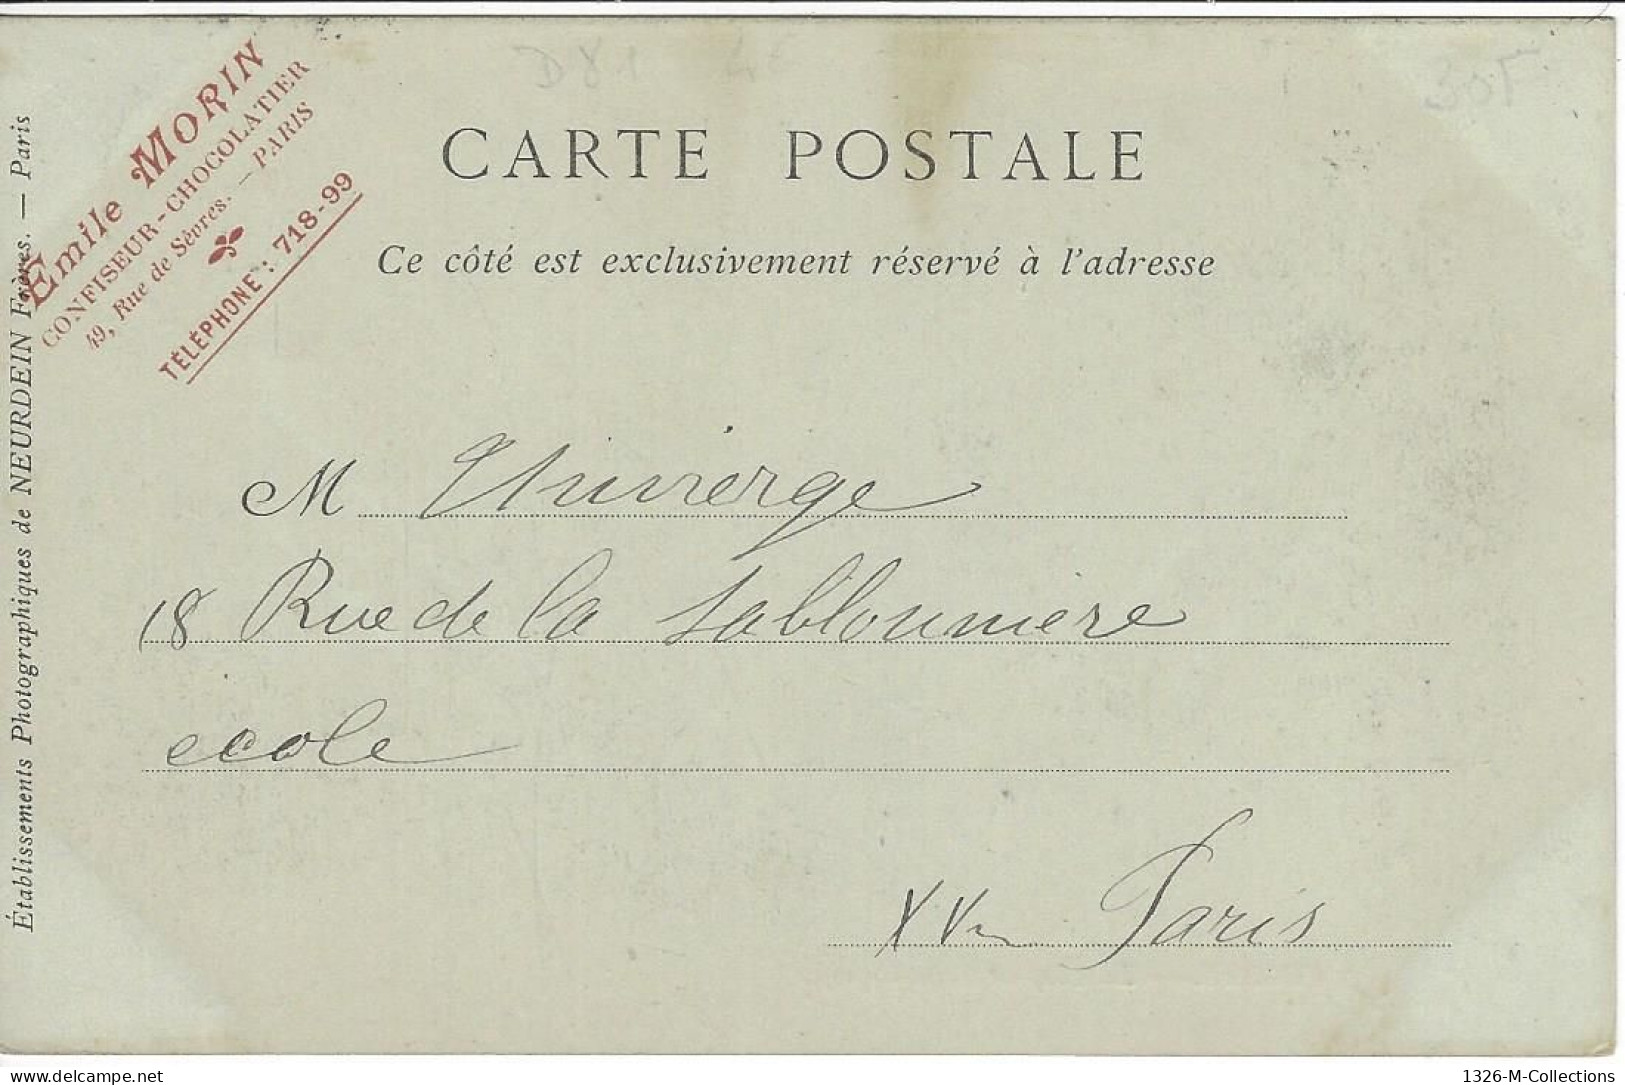 Emile MORIN
CONFISEUR-CHOCOLATIER
49, Rue de Sèvres. — PARIS
TÉLÉPHONE : 718-99
Établissements Photographiques de NEURDEIN Frères. — Paris
CARTE POSTALE
Ce côté est exclusivement réservé à l'adresse
M
18 Rue de la Sablonniere
ecole
XV Paris
delcampe.net
1326-M-Collections